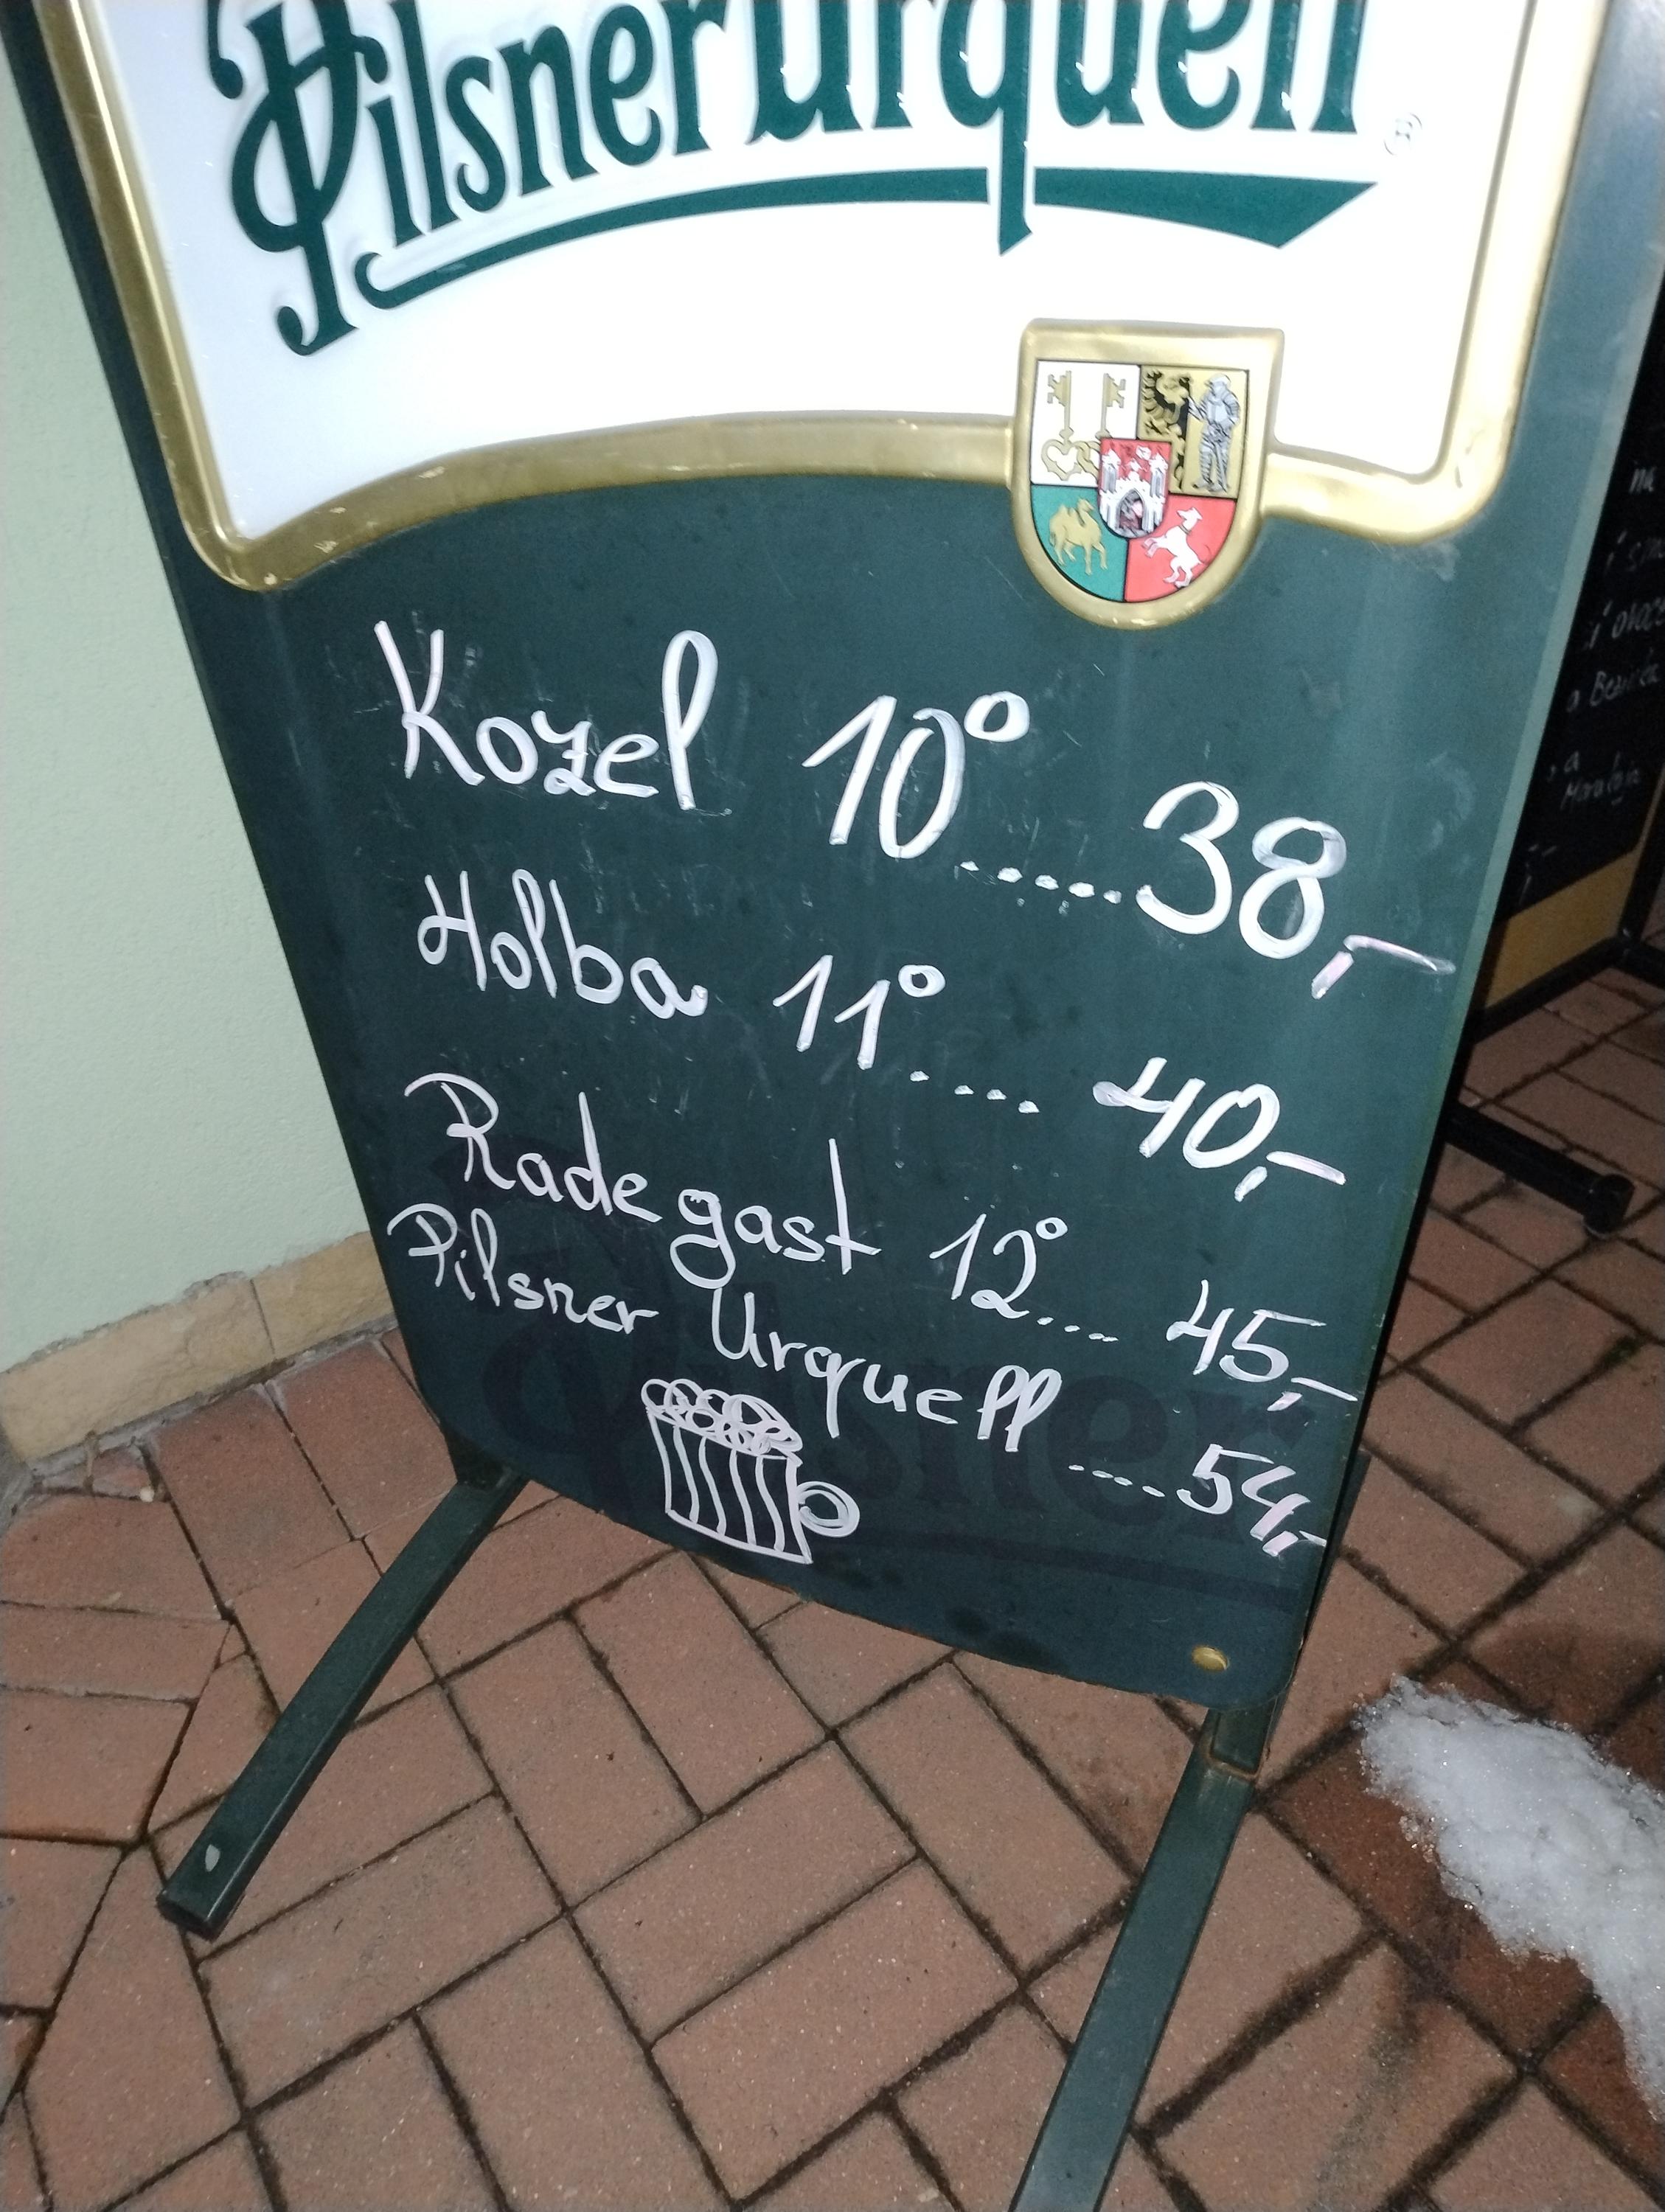 Pilsner Urquell ®
Kozel 10°.....38,-
Holba 11°.... 40,-
Radegast 12°.... 45,-
Pilsner Urquell ....54,-
Pilsner